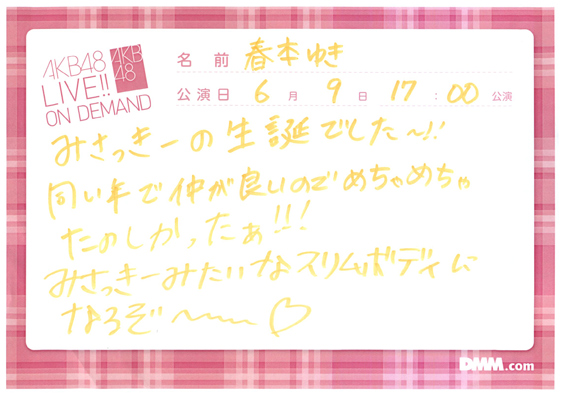 AKB48
LIVE!!
ON DEMAND
AKB
48
名前 春本ゆき
公演日 6月9日 17:00公演
みさっきーの生誕でした〜!!
同い年で仲が良いのでめちゃめちゃ
たのしかったぁ!!!
みさっきーみたいなスリムボディに
なるぞ〜〜♡
DMM.com